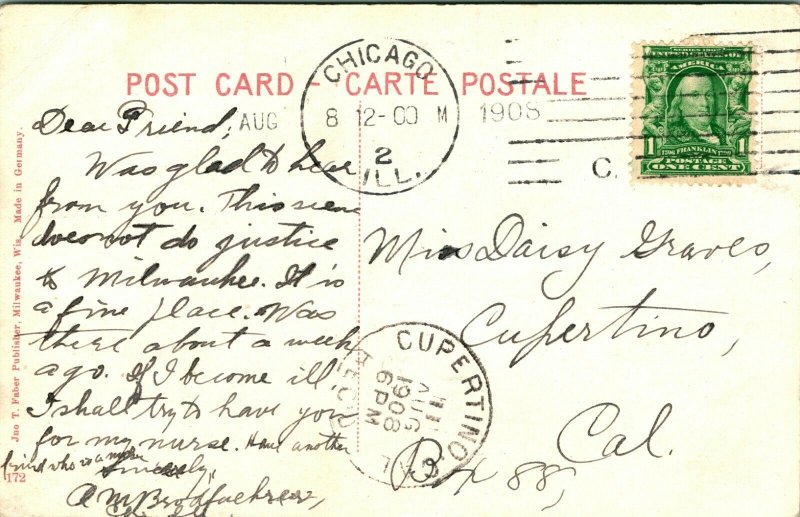 POST CARD - CARTE POSTALE
CHICAGO
AUG 8 12-00 M 1908
2
ILL.
C.
SERIES 1902
UNITED STATES OF
AMERICA
1706 FRANKLIN 1790
1 POSTAGE 1
ONE CENT
Dear Friend;
Was glad to hear
from you. This scene
does not do justice
to Milwaukee. It is
a fine place. Was
there about a week
ago. If I become ill,
I shall try to have you
for my nurse. Have another
friend who is a nurse
Sincerely,
A M
Miss Daisy Graves,
Cupertino,
Cal.
Box 88,
CUPERTINO
AUG
11
6PM
1908
REC'D.
CAL
Jno T. Faber Publisher, Milwaukee, Wis. Made in Germany.
172